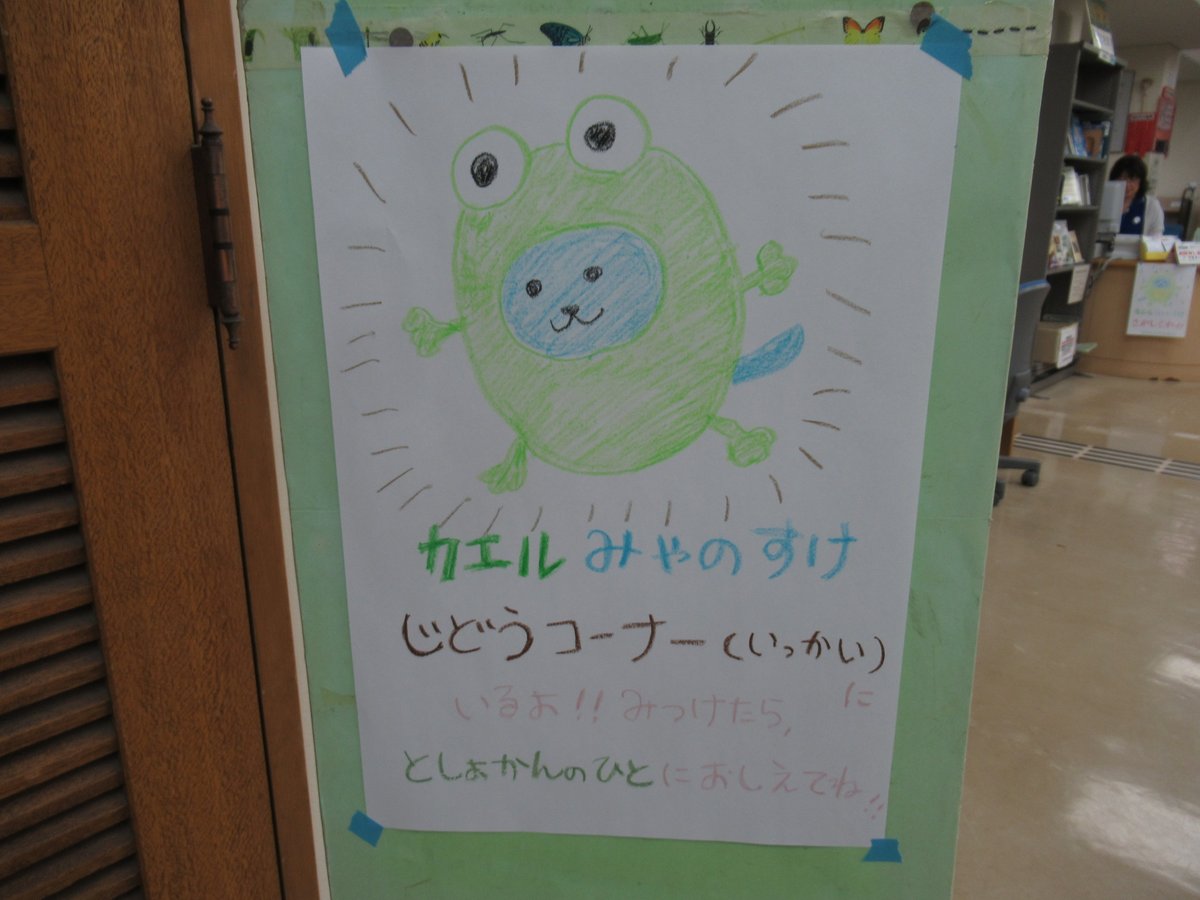 カエルみやのすけ
じどうコーナー(いっかい)に
いるよ!!みつけたら、
としょかんのひとにおしえてね!!